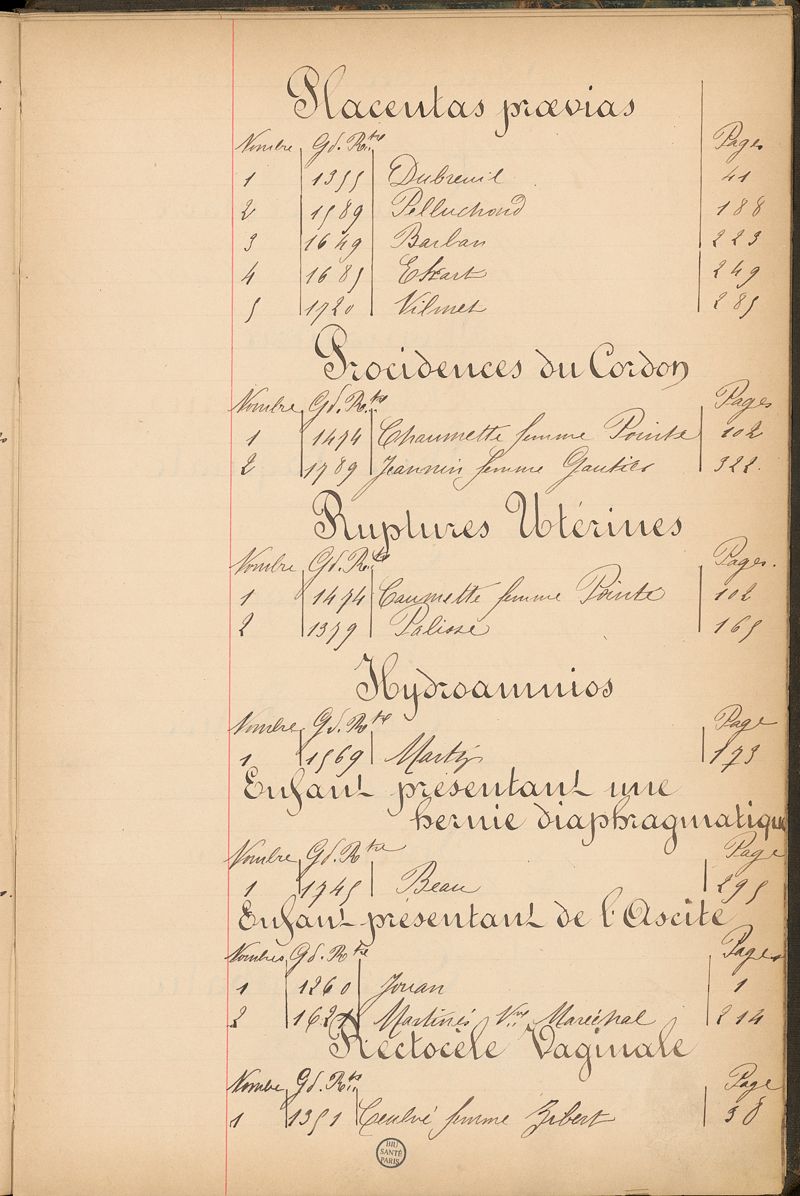 Placentas prævias
Nombre Gd. Rtre Pages
1 1355 Dubreuil 41
2 1589 Pelluchond 188
3 1649 Barban 223
4 1685 249
5 1720 Vilmet 285
Procidences du Cordon
Nombre Gd. Rtre Pages
1 1474 Chaumette femme Pointe 102
2 1789 Jeannin femme Gautier 322.
Ruptures Utérines
Nombre Gd. Rtre Pages.
1 1474 Caumette femme Pointe 102
2 1379 Palisse 165
Hydroamnios
Nombre Gd. Rtre Page
1 1569 Martin 173
Enfant présentant une
hernie diaphragmatique
Nombre Gd. Rtre Page
1 1745 Beau 295
Enfant présentant de l'Ascite
Nombres Gd. Rtre Pages
1 1260 Jouan 1
2 1621 Martinés Vve Maréchal 214
Rectocèle Vaginale
Nombre Gd. Rtre Page
1 1351 femme 38
BIU
SANTÉ
PARIS